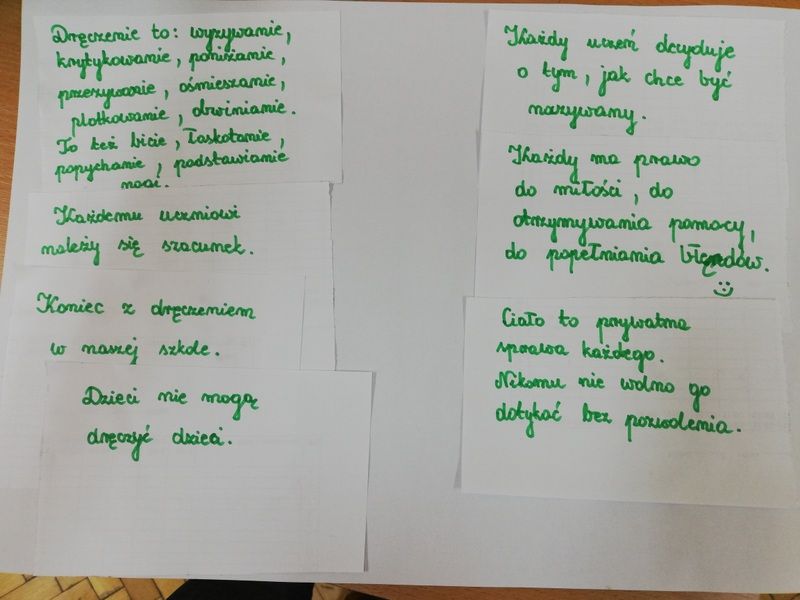 Dręczenie to: wyzywanie,
krytykowanie, poniżanie,
przezywanie, ośmieszanie,
plotkowanie, obwinianie.
To też bicie, łaskotanie,
popychanie, podstawianie
nogi.
Każdemu uczniowi
należy się szacunek.
Koniec z dręczeniem
w naszej szkole.
Dzieci nie mogą
dręczyć dzieci.
Każdy uczeń decyduje
o tym, jak chce być
nazywany.
Każdy ma prawo
do miłości, do
otrzymywania pomocy,
do popełniania błędów.
Ciało to prywatna
sprawa każdego.
Nikomu nie wolno go
dotykać bez pozwolenia.